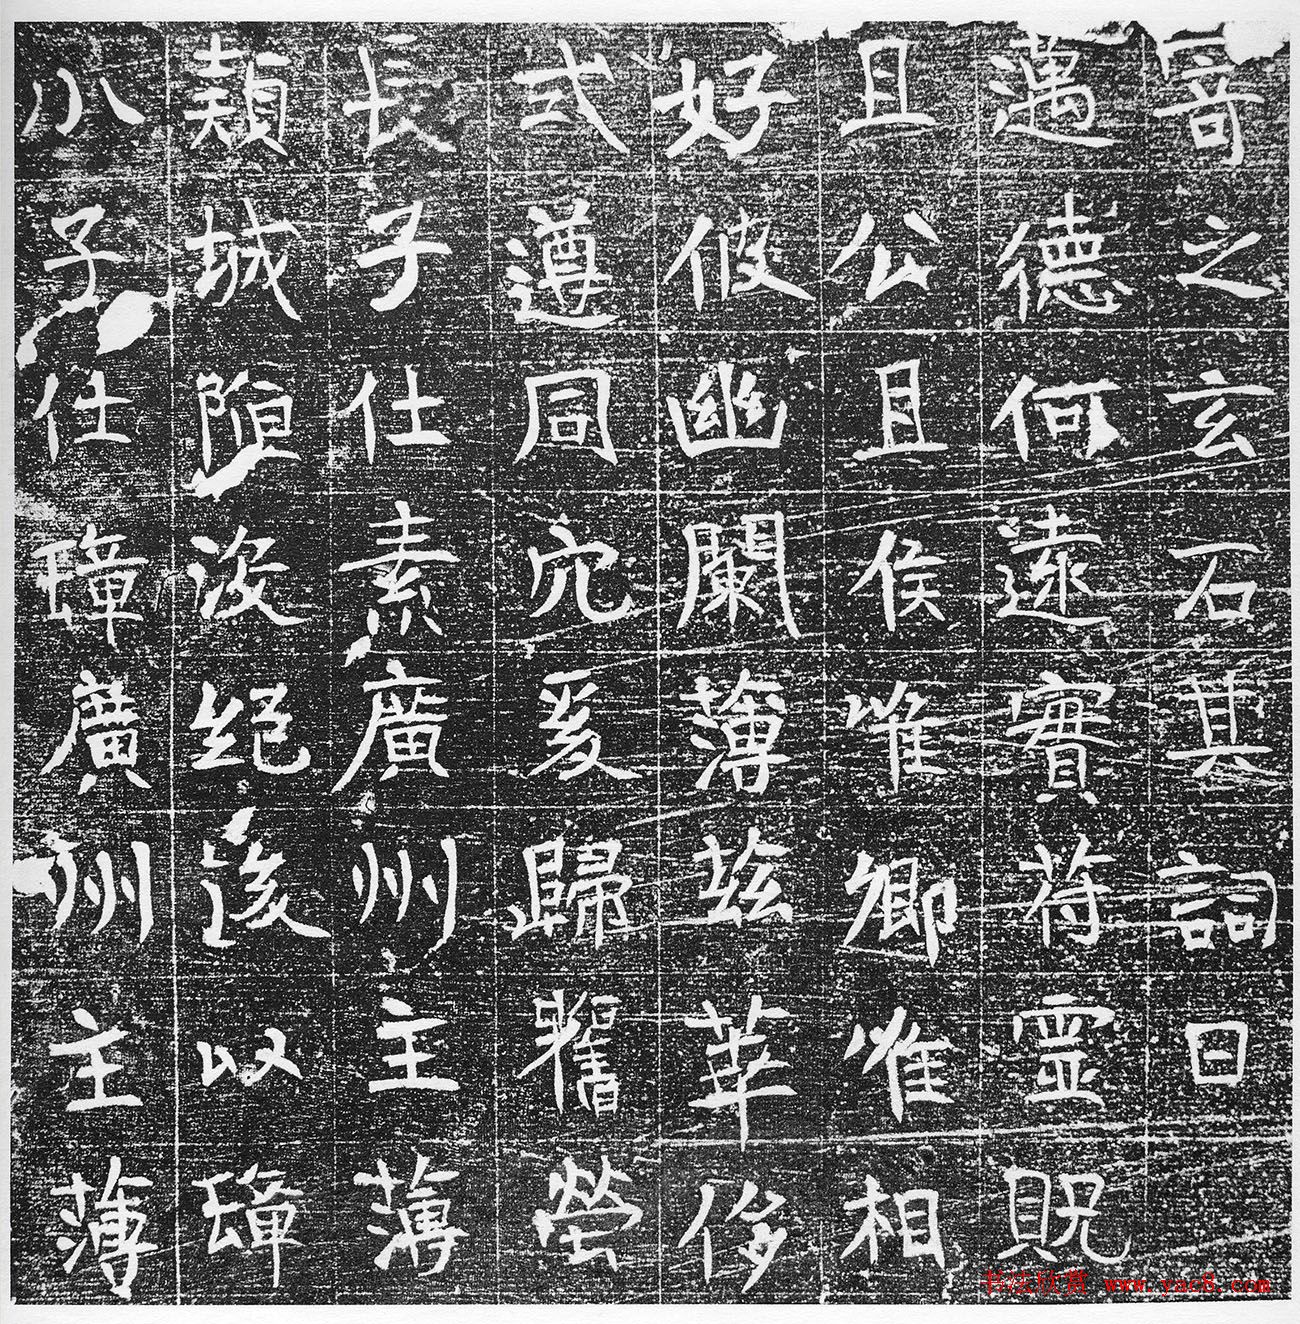 寄之玄石其詞曰
邁德何遠寶苻靈貺
且公且侯唯卿唯相
好彼幽闌薄茲華侈
式遵同穴爰歸舊塋
長子仕素廣州主薄
頴城隕沒絕後以璋
小子仕璋廣州主薄
书法欣赏 www.yac8.com